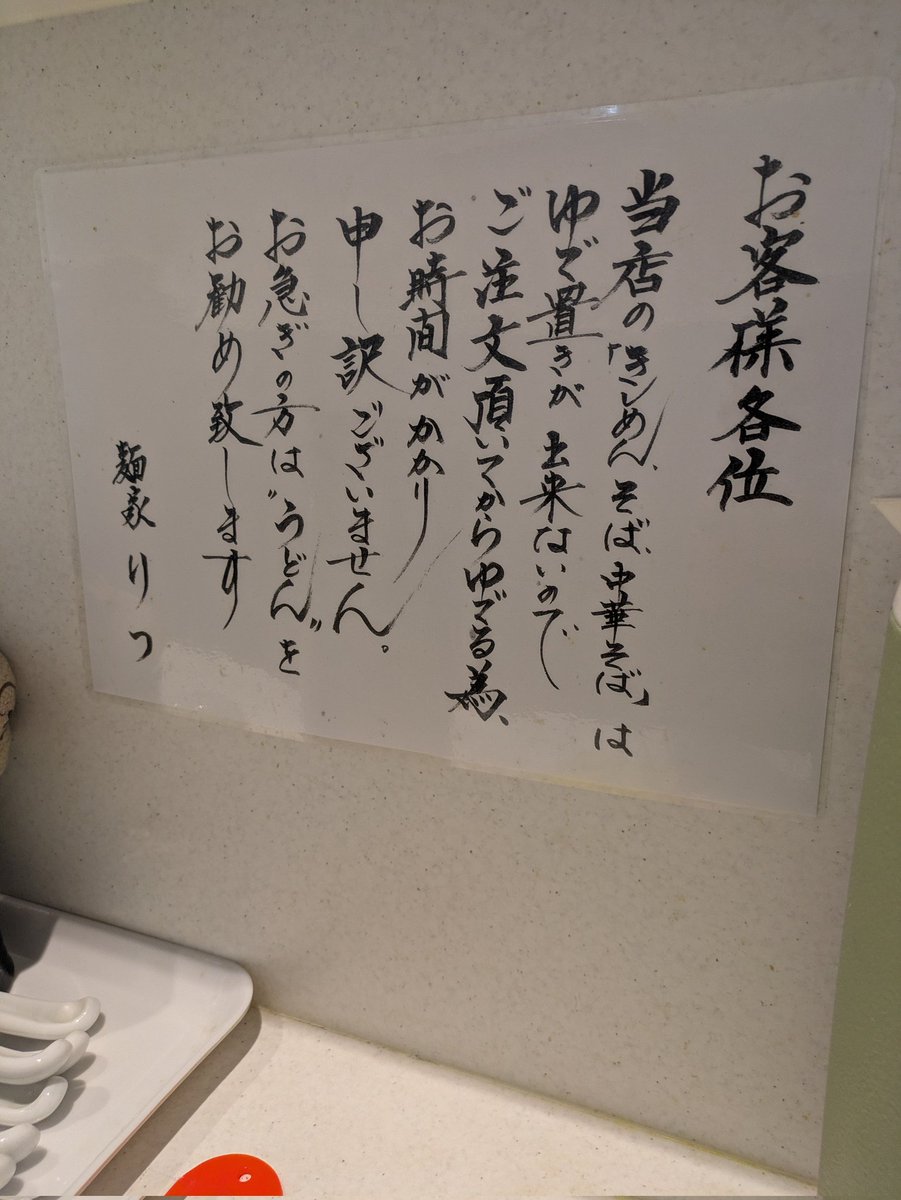 お客様各位
当店の「きしめん、そば、中華そば」は
ゆで置きが出来ないので
ご注文頂いてからゆでる為、
お時間がかかり
申し訳ございません。
お急ぎの方は"うどん"を
お勧め致します
麺家りつ